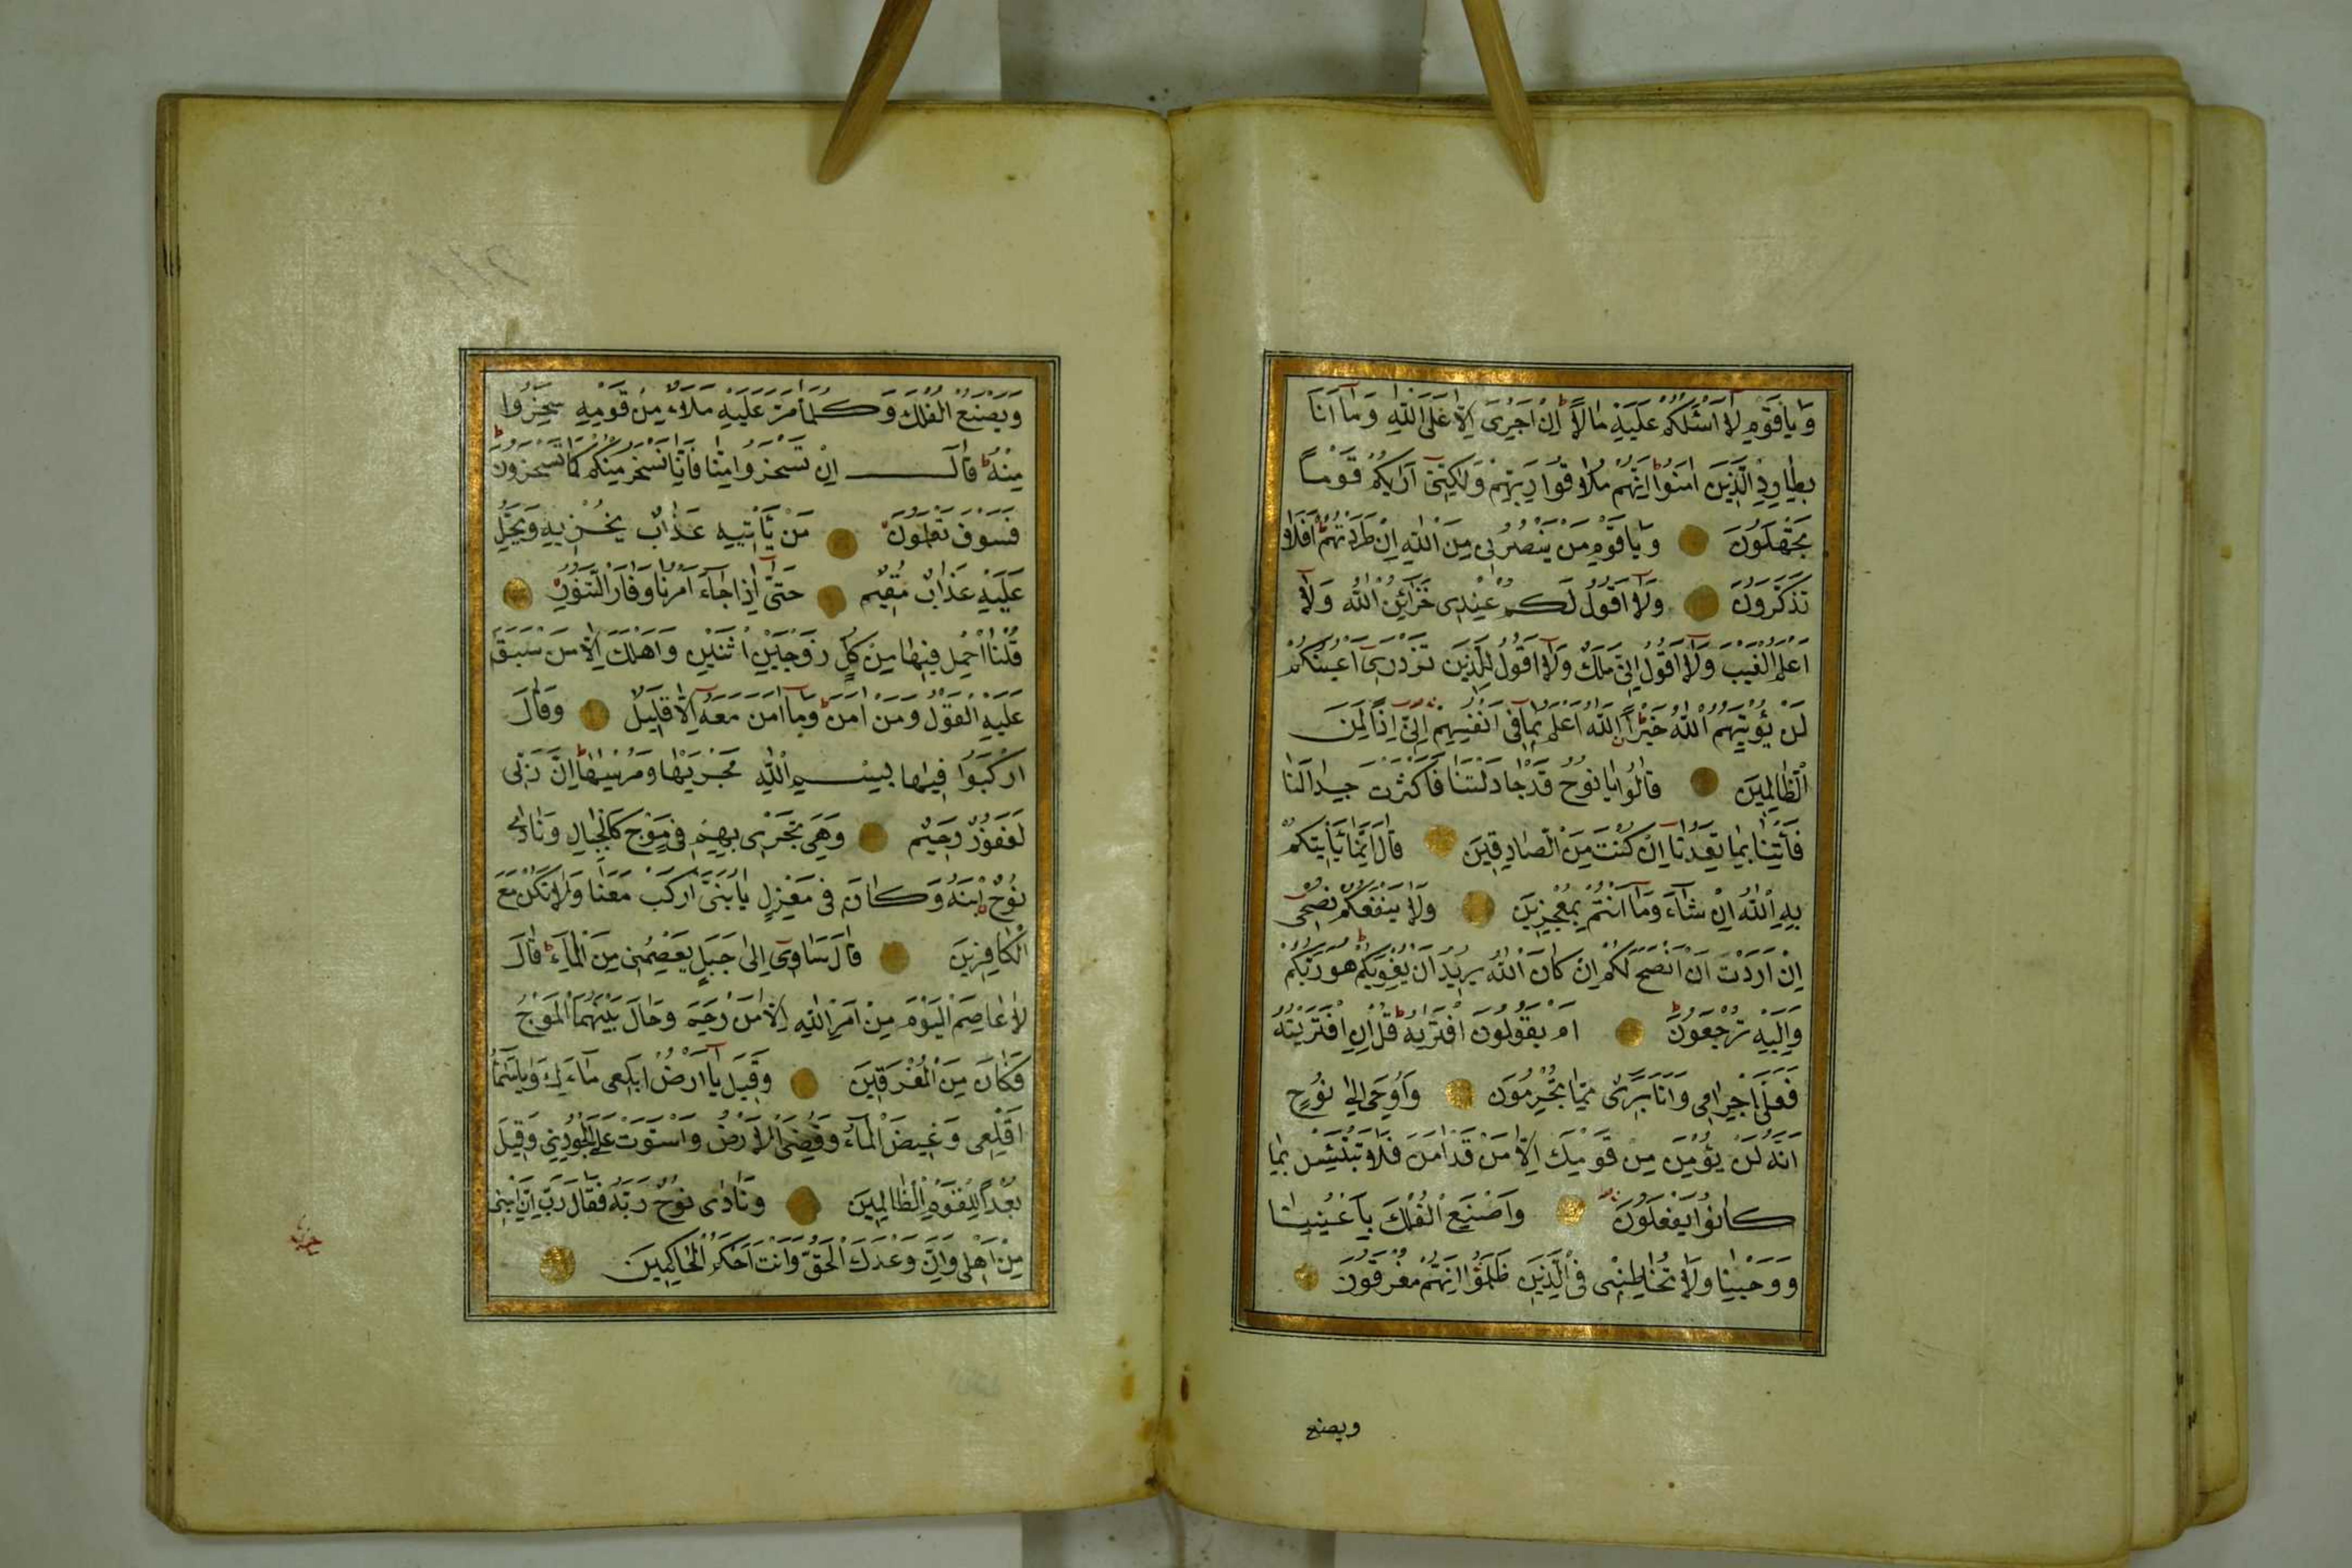 وَيَا قَوْمِ لَا اَسْئَلُكُمْ عَلَيْهِ مَالًا اِنْ اَجْرِىَ اِلَّا عَلَى اللّٰهِ وَمَا اَنَا
بِطَارِدِ الَّذِينَ اٰمَنُوا اِنَّهُمْ مُلَاقُوا رَبِّهِمْ وَلٰكِنّٖى اَرٰيكُمْ قَوْمًا
تَجْهَلُونَ وَيَا قَوْمِ مَنْ يَنْصُرُنٖى مِنَ اللّٰهِ اِنْ طَرَدْتُهُمْ اَفَلَا
تَذَكَّرُونَ وَلَا اَقُولُ لَكُمْ عِنْدٖى خَزَائِنُ اللّٰهِ وَلَا
اَعْلَمُ الْغَيْبَ وَلَا اَقُولُ اِنّٖى مَلَكٌ وَلَا اَقُولُ لِلَّذٖينَ تَزْدَرٖى اَعْيُنُكُمْ
لَنْ يُؤْتِيَهُمُ اللّٰهُ خَيْرًا اَللّٰهُ اَعْلَمُ بِمَا فٖى اَنْفُسِهِمْ اِنّٖى اِذًا لَمِنَ
الظَّالِمٖينَ قَالُوا يَا نُوحُ قَدْ جَادَلْتَنَا فَاَكْثَرْتَ جِدَالَنَا
فَأْتِنَا بِمَا تَعِدُنَا اِنْ كُنْتَ مِنَ الصَّادِقٖينَ قَالَ اِنَّمَا يَأْتٖيكُمْ
بِهِ اللّٰهُ اِنْ شَاءَ وَمَا اَنْتُمْ بِمُعْجِزٖينَ وَلَا يَنْفَعُكُمْ نُصْحٖى
اِنْ اَرَدْتُ اَنْ اَنْصَحَ لَكُمْ اِنْ كَانَ اللّٰهُ يُرٖيدُ اَنْ يُغْوِيَكُمْ هُوَ رَبُّكُمْ
وَاِلَيْهِ تُرْجَعُونَ اَمْ يَقُولُونَ افْتَرٰيهُ قُلْ اِنِ افْتَرَيْتُهُ
فَعَلَىَّ اِجْرَامٖى وَاَنَا بَرٖىءٌ مِمَّا تُجْرِمُونَ وَاُوحِىَ اِلٰى نُوحٍ
اَنَّهُ لَنْ يُؤْمِنَ مِنْ قَوْمِكَ اِلَّا مَنْ قَدْ اٰمَنَ فَلَا تَبْتَئِسْ بِمَا
كَانُوا يَفْعَلُونَ وَاصْنَعِ الْفُلْكَ بِاَعْيُنِنَا
وَوَحْيِنَا وَلَا تُخَاطِبْنٖى فِى الَّذٖينَ ظَلَمُوا اِنَّهُمْ مُغْرَقُونَ
ويصنع
وَيَصْنَعُ الْفُلْكَ وَكُلَّمَا مَرَّ عَلَيْهِ مَلَاءٌ مِنْ قَوْمِهٖ سَخِرُوا
مِنْهُ قَالَ اِنْ تَسْخَرُوا مِنَّا فَاِنَّا نَسْخَرُ مِنْكُمْ كَمَا تَسْخَرُونَ
فَسَوْفَ تَعْلَمُونَ مَنْ يَأْتٖيهِ عَذَابٌ يُخْزٖيهِ وَيَحِلُّ
عَلَيْهِ عَذَابٌ مُقٖيمٌ حَتّٰى اِذَا جَاءَ اَمْرُنَا وَفَارَ التَّنُّورُ
قُلْنَا احْمِلْ فٖيهَا مِنْ كُلٍّ زَوْجَيْنِ اثْنَيْنِ وَاَهْلَكَ اِلَّا مَنْ سَبَقَ
عَلَيْهِ الْقَوْلُ وَمَنْ اٰمَنَ وَمَا اٰمَنَ مَعَهُ اِلَّا قَلٖيلٌ وَقَالَ
ارْكَبُوا فٖيهَا بِسْمِ اللّٰهِ مَجْرٰيهَا وَمُرْسٰيهَا اِنَّ رَبّٖى
لَغَفُورٌ رَحٖيمٌ وَهِىَ تَجْرٖى بِهِمْ فٖى مَوْجٍ كَالْجِبَالِ وَنَادٰى
نُوحٌ ابْنَهُ وَكَانَ فٖى مَعْزِلٍ يَا بُنَىَّ ارْكَبْ مَعَنَا وَلَا تَكُنْ مَعَ
الْكَافِرٖينَ قَالَ سَاٰوٖى اِلٰى جَبَلٍ يَعْصِمُنٖى مِنَ الْمَاءِ قَالَ
لَا عَاصِمَ الْيَوْمَ مِنْ اَمْرِ اللّٰهِ اِلَّا مَنْ رَحِمَ وَحَالَ بَيْنَهُمَا الْمَوْجُ
فَكَانَ مِنَ الْمُغْرَقٖينَ وَقٖيلَ يَا اَرْضُ ابْلَعٖى مَاءَكِ وَيَا سَمَاءُ
اَقْلِعٖى وَغٖيضَ الْمَاءُ وَقُضِىَ الْاَمْرُ وَاسْتَوَتْ عَلَى الْجُودِىِّ وَقٖيلَ
بُعْدًا لِلْقَوْمِ الظَّالِمٖينَ وَنَادٰى نُوحٌ رَبَّهُ فَقَالَ رَبِّ اِنَّ ابْنٖى
مِنْ اَهْلٖى وَاِنَّ وَعْدَكَ الْحَقُّ وَاَنْتَ اَحْكَمُ الْحَاكِمٖينَ